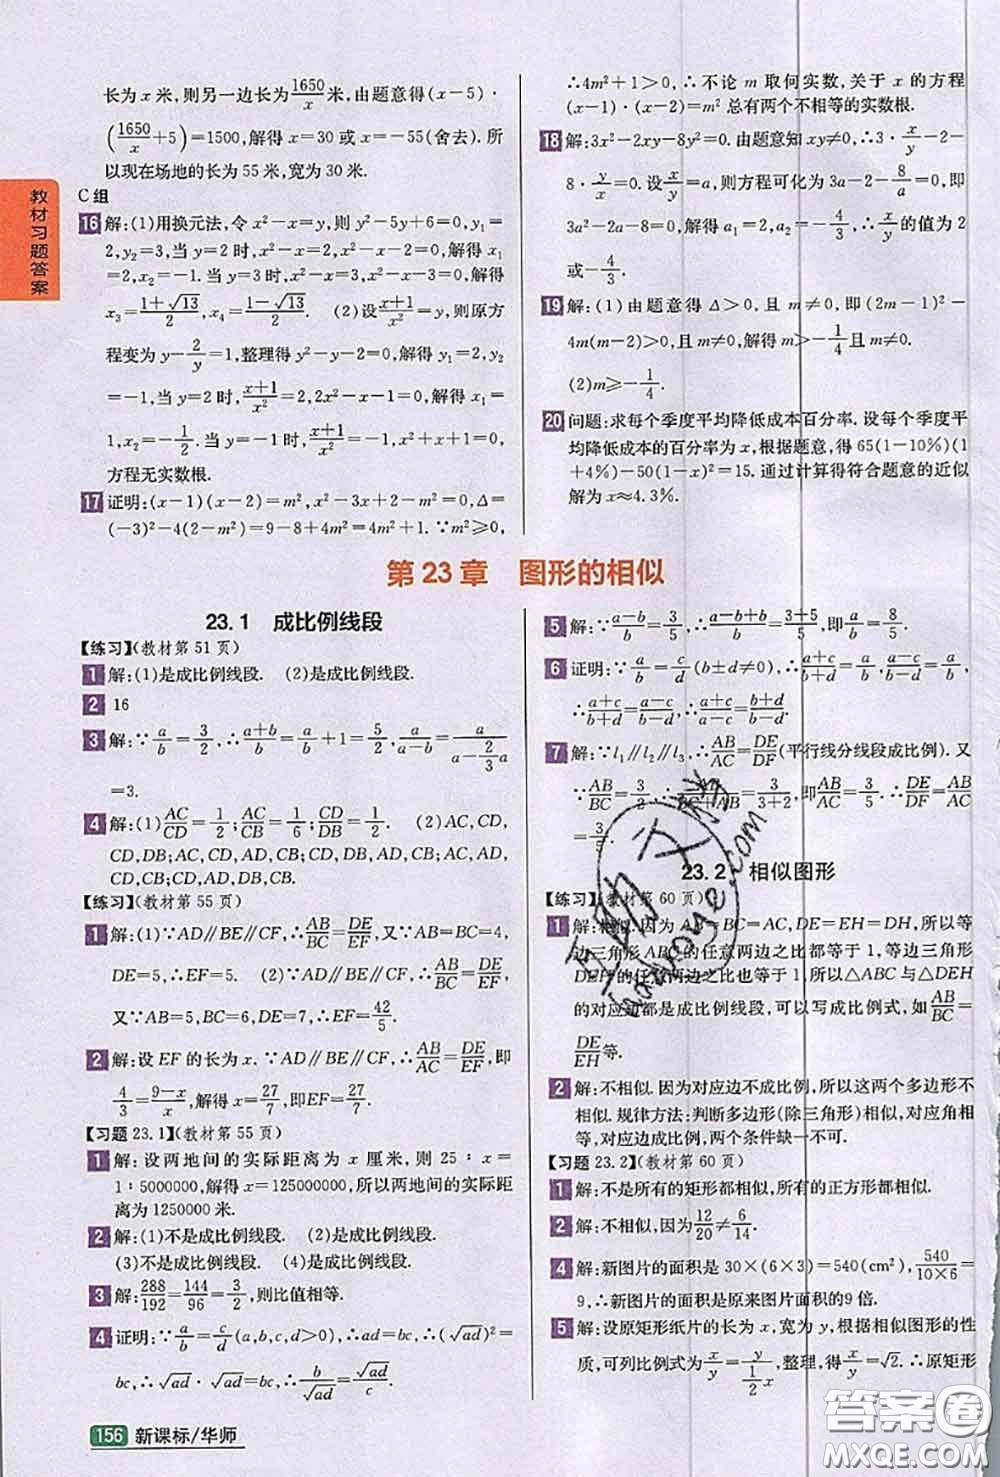 教材习题答案
长为 x 米,则另一边长为1650/x 米,由题意得(x−5)·
(1650/x+5)=1500,解得 x=30 或 x=−55(舍去). 所
以现在场地的长为 55 米,宽为 30 米.
C 组
16 解:(1)用换元法,令 x²−x=y,则 y²−5y+6=0,y₁=
2,y₂=3,当 y=2 时,x²−x=2,x²−x−2=0,解得 x₁
=2,x₂=−1. 当 y=3 时,x²−x=3,x²−x−3=0,解得
x₃=(1+√13)/2,x₄=(1−√13)/2. (2)设(x+1)/x²=y,则原方
程变为 y−2/y=1,整理得 y²−y−2=0,解得 y₁=2,y₂=
−1,当 y=2 时,(x+1)/x²=2,2x²−x−1=0,解得 x₁=
1,x₂=−1/2. 当 y=−1 时,(x+1)/x²=−1,x²+x+1=0,
方程无实数根.
17 证明:(x−1)(x−2)=m²,x²−3x+2−m²=0,Δ=
(−3)²−4(2−m²)=9−8+4m²=4m²+1.∵m²⩾0,
∴4m²+1>0,∴不论 m 取何实数,关于 x 的方程
(x−1)·(x−2)=m² 总有两个不相等的实数根.
18 解:3x²−2xy−8y²=0. 由题意知 xy≠0,∴3·x/y−2−
8·y/x=0. 设x/y=a,则方程可化为 3a−2−8/a=0,即
3a²−2a−8=0,解得 a₁=2,a₂=−4/3,∴x/y的值为 2
或−4/3.
19 解:(1)由题意得 Δ>0,且 m≠0,即(2m−1)²−
4m(m−2)>0,且 m≠0,解得 m>−1/4且 m≠0.
(2)m⩾−1/4.
20 问题:求每个季度平均降低成本百分率. 设每个季度平
均降低成本的百分率为 x,根据题意,得 65(1−10%)(1
+4%)−50(1−x)²=15. 通过计算得符合题意的近似
解为 x≈4.3%.
第 23 章　图形的相似
23.1　成比例线段
【练习】(教材第 51 页)
1 解:(1)是成比例线段. (2)是成比例线段.
2 16
3 解:∵a/b=3/2,∴(a+b)/b=a/b+1=5/2,a/(a−b)=a/(a−2/3a)
=3.
4 解:(1)AC/CD=1/2;AC/CB=1/6;CD/DB=1/2. (2)AC,CD,
CD,DB;AC,CD,AD,CB;AC,AD,CD,CB;AD,AC,
CB,CD.
【练习】(教材第 55 页)
1 解:(1)∵AD∥BE∥CF,∴AB/BC=DE/EF,又∵AB=BC=4,
DE=5,∴EF=5. (2)∵AD∥BE∥CF,∴AB/BC=DE/EF,
又∵AB=5,BC=6,DE=7,∴EF=42/5.
2 解:设 EF 的长为 x.∵AD∥BE∥CF,∴AB/AC=DE/EF,即
4/3=(9−x)/x,解得 x=27/7,即EF=27/7.
【习题 23.1】(教材第 55 页)
1 解:设两地间的实际距离为 x 厘米,则 25∶x=
1∶5000000,解得 x=125000000,所以两地间的实际距
离为 1250000 米.
2 解:(1)不是成比例线段. (2)是成比例线段.
(3)不是成比例线段. (4)是成比例线段.
3 解:288/192=144/96=3/2,则比值相等.
4 证明:∵a/b=c/d(a,b,c,d>0),∴ad=bc,∴(√ad)²=
bc,∴√ad·√ad=bc,∴b/√ad=√ad/c.
5 解:∵(a−b)/b=3/5,∴(a−b+b)/b=(3+5)/5,即a/b=8/5.
6 证明:∵a/b=c/d(b±d≠0),∴(a+c)/(b+d)=a/b,(a−c)/(b−d)=a/b,
∴(a+c)/(b+d)=(a−c)/(b−d),∴(a+c)/(a−c)=(b+d)/(b−d).
7 解:∵l₁∥l₂∥l₃,∴AB/AC=DE/DF(平行线分线段成比例). 又
∵AB/BC=3/2,∴AB/(BC+AB)=3/(3+2),即AB/AC=3/5,∴DE/DF=AB/AC
=3/5.
23.2　相似图形
【练习】(教材第 60 页)
1 解:相似. 因为 AB=BC=AC,DE=EH=DH,所以等
边三角形 ABC 的任意两边之比都等于 1,等边三角形
DEH 的任意两边之比也等于 1,所以△ABC 与△DEH
的对应边都是成比例线段,可以写成比例式,如AB/BC=
DE/EH等.
2 解:不相似. 因为对应边不成比例,所以这两个多边形不
相似. 规律方法:判断多边形(除三角形)相似,对应角相
等、对应边成比例,两个条件缺一不可.
【习题 23.2】(教材第 60 页)
1 解:不是所有的矩形都相似,所有的正方形都相似.
2 解:不相似,因为12/20≠6/14.
4 解:新图片的面积是 30×(6×3)=540(cm²),540/(10×6)=
9,∴新图片的面积是原来图片面积的9 倍.
5 解:设原矩形纸片的长为 x,宽为 y,根据相似图形的性
质,可列比例式为x/y=y/(1/2x),整理,得x/y=√2.∴原矩形
156 新课标/华师
答案圈
MXQE.COM